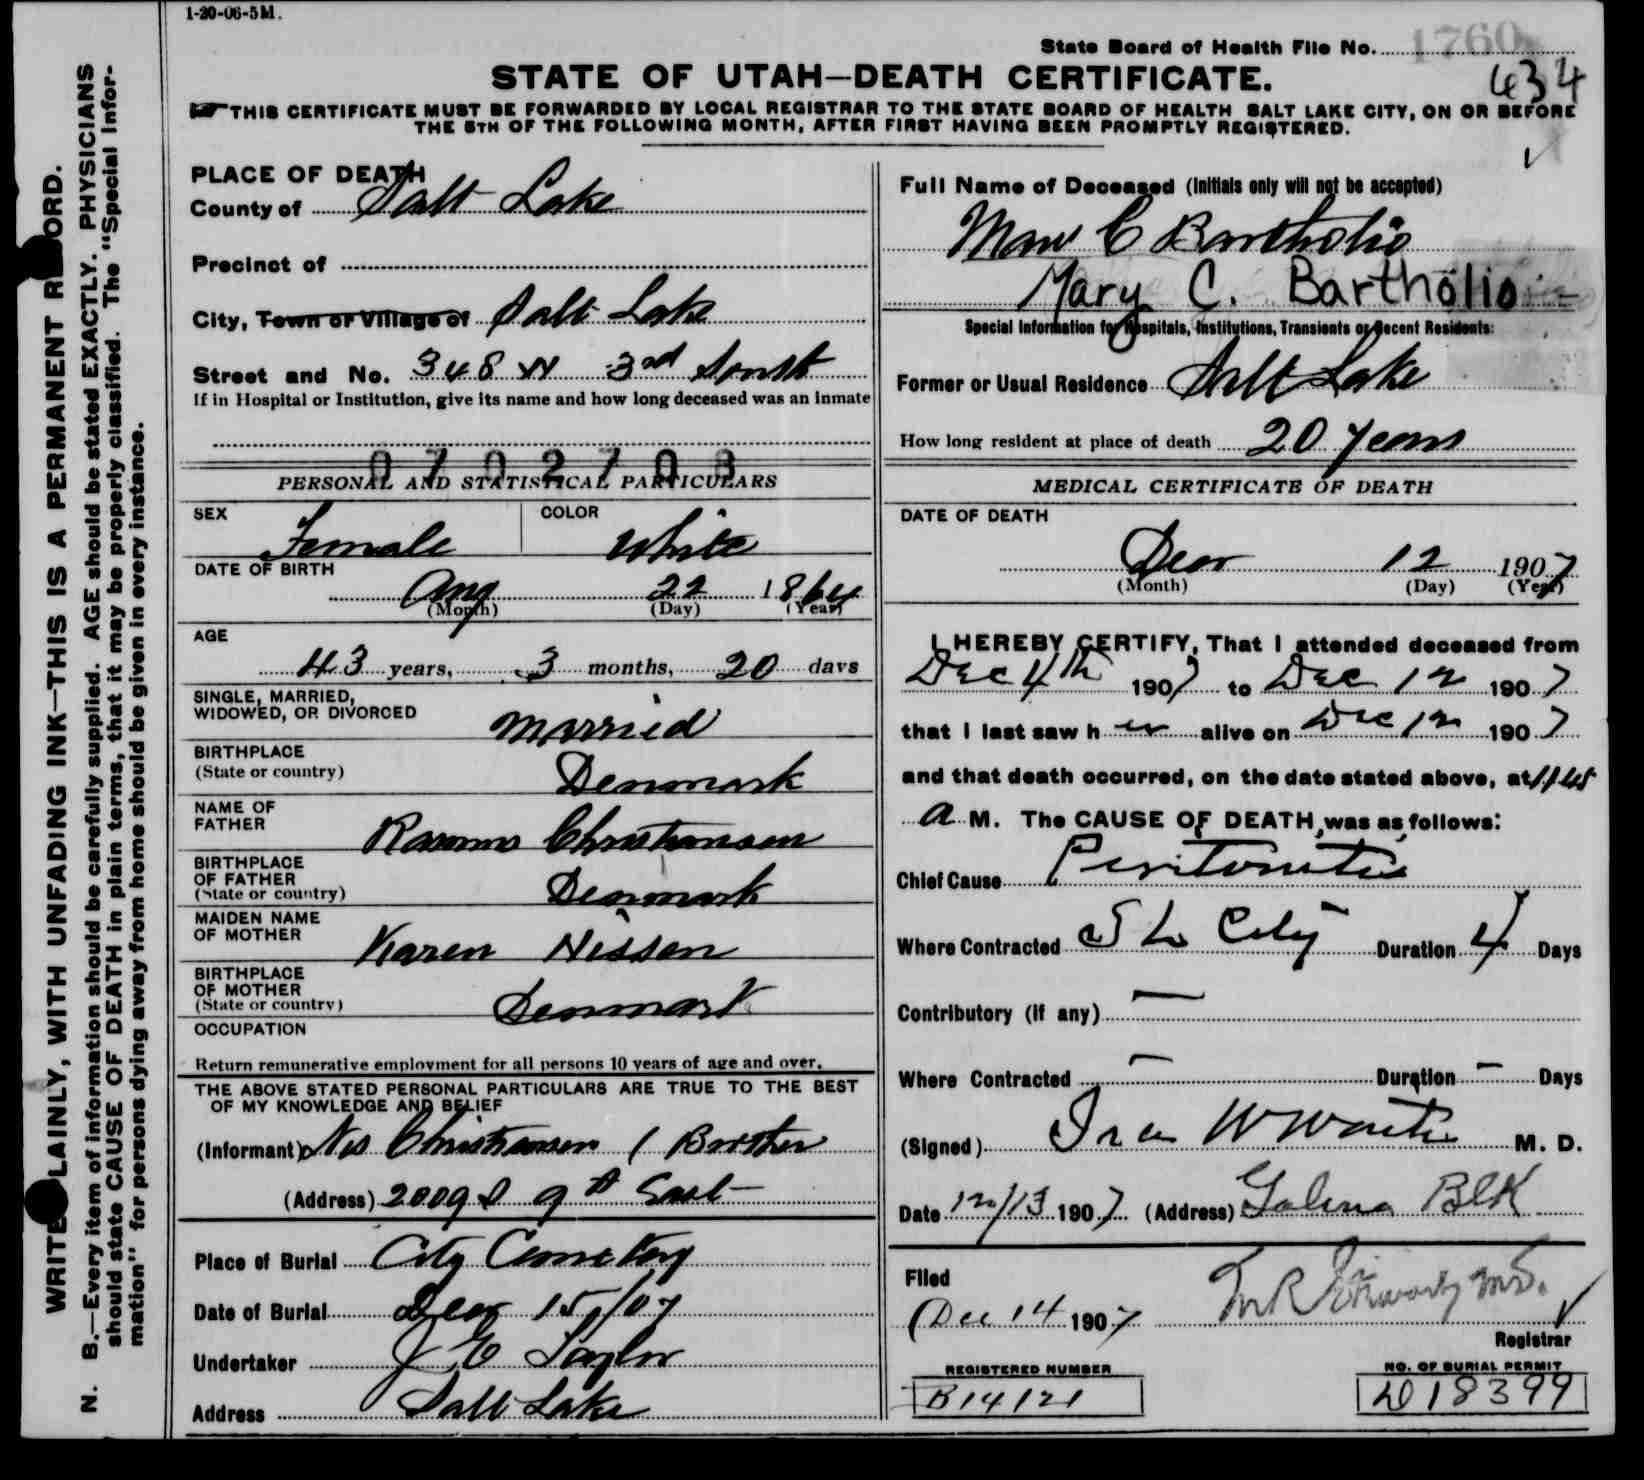 1-20-06-5M.
State Board of Health File No. 1760
434
STATE OF UTAH—DEATH CERTIFICATE.
THIS CERTIFICATE MUST BE FORWARDED BY LOCAL REGISTRAR TO THE STATE BOARD OF HEALTH SALT LAKE CITY, ON OR BEFORE
THE 5TH OF THE FOLLOWING MONTH, AFTER FIRST HAVING BEEN PROMPTLY REGISTERED.
WRITE PLAINLY, WITH UNFADING INK—THIS IS A PERMANENT RECORD.
N. B.—Every item of information should be carefully supplied. AGE should be stated EXACTLY. PHYSICIANS
should state CAUSE OF DEATH in plain terms, that it may be properly classified. The "Special Infor-
mation" for persons dying away from home should be given in every instance.
PLACE OF DEATH
County of Salt Lake
Precinct of
City, Town or Village of Salt Lake
Street and No. 348 W 3rd South
If in Hospital or Institution, give its name and how long deceased was an inmate
0702703
PERSONAL AND STATISTICAL PARTICULARS
SEX Female COLOR White
DATE OF BIRTH
Aug 22 1864
(Month) (Day) (Year)
AGE
43 years, 3 months, 20 days
SINGLE, MARRIED,
WIDOWED, OR DIVORCED Married
BIRTHPLACE
(State or country) Denmark
NAME OF
FATHER Rasmus Christiansen
BIRTHPLACE
OF FATHER
(State or country) Denmark
MAIDEN NAME
OF MOTHER Karen Nissen
BIRTHPLACE
OF MOTHER
(State or country) Denmark
OCCUPATION
Return remunerative employment for all persons 10 years of age and over.
THE ABOVE STATED PERSONAL PARTICULARS ARE TRUE TO THE BEST
OF MY KNOWLEDGE AND BELIEF
(Informant) Nis Christiansen (Brother
(Address) 2009 S 9th East
Place of Burial City Cemetery
Date of Burial Dec 15/07
Undertaker J E Taylor
Address Salt Lake
Full Name of Deceased (Initials only will not be accepted)
Mary C Bartholio
Mary C. Bartholio
Special Information for Hospitals, Institutions, Transients or Recent Residents:
Former or Usual Residence Salt Lake
How long resident at place of death 20 years
MEDICAL CERTIFICATE OF DEATH
DATE OF DEATH
Decr 12 1907
(Month) (Day) (Year)
I HEREBY CERTIFY, That I attended deceased from
Dec 4th 1907 to Dec 12 1907
that I last saw her alive on Dec 12 1907
and that death occurred, on the date stated above, at 11:45
a M. The CAUSE OF DEATH was as follows:
Chief Cause Peritonitis
Where Contracted S L City Duration 4 Days
Contributory (if any) —
Where Contracted — Duration — Days
(Signed) M. D.
Date 12/13 1907 (Address) Galena Blk
Filed
Dec 14 1907
Registrar
REGISTERED NUMBER
B14121
NO. OF BURIAL PERMIT
D18399